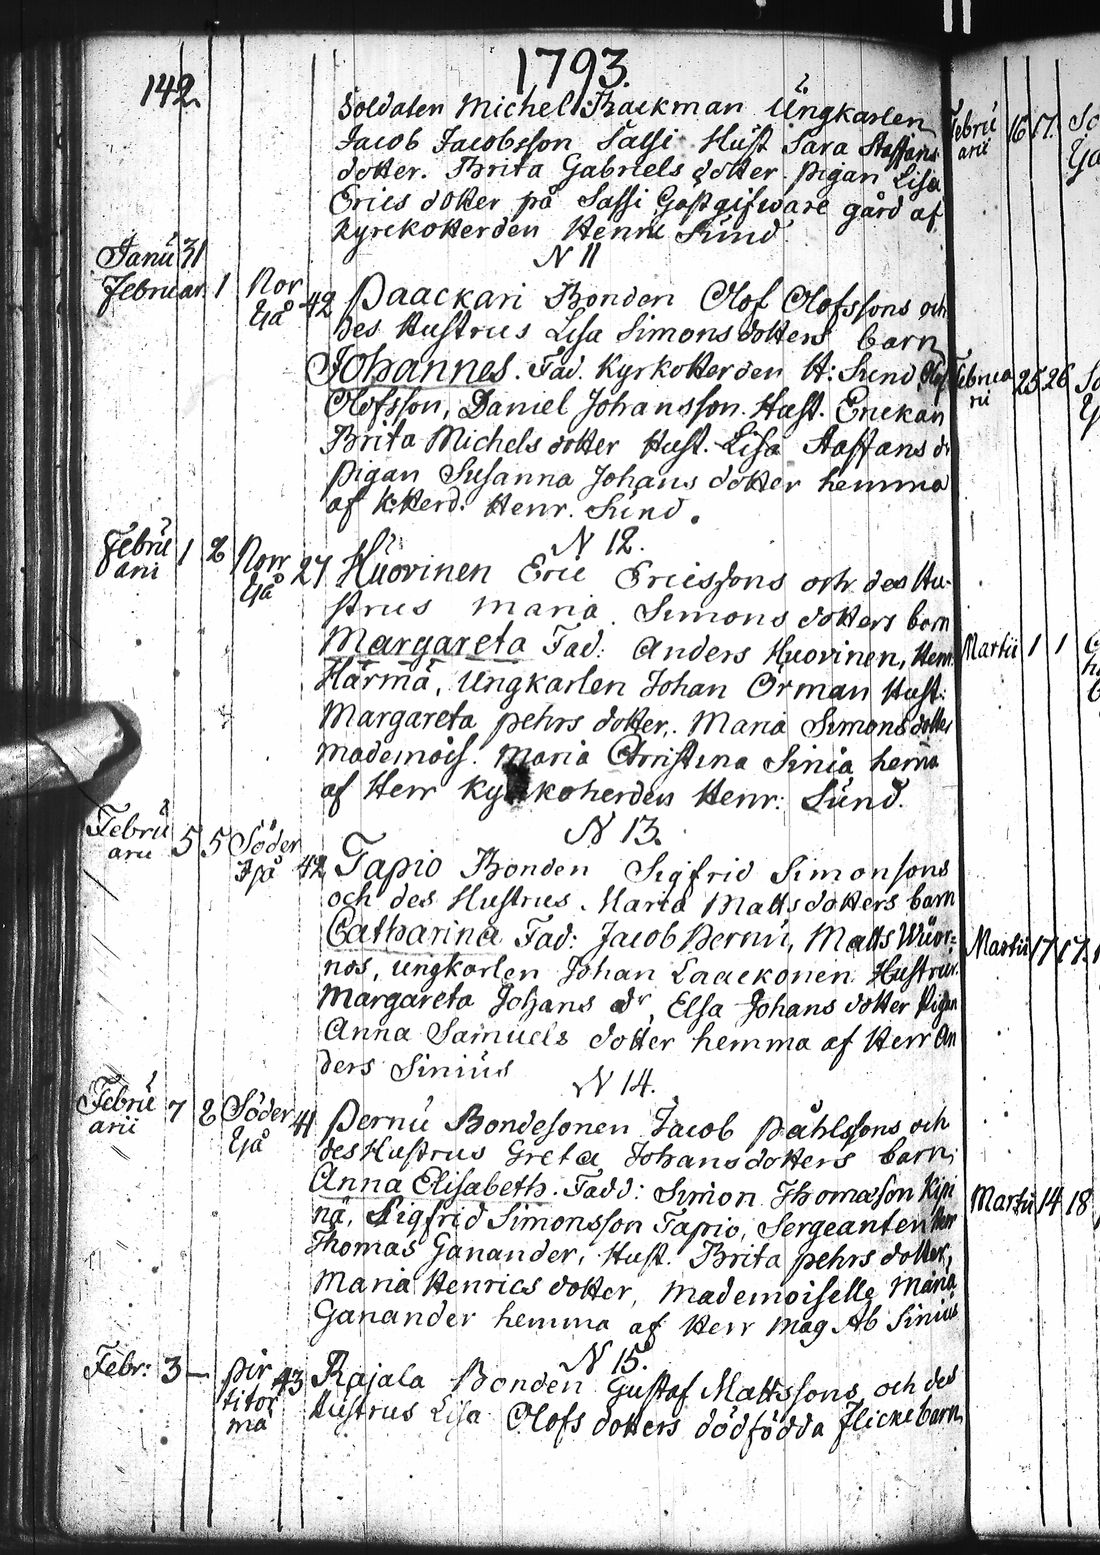 1793.
142.
Soldaten Michel Brackman Ungkarlen
Jacob Jacobsson Sassi Hust Sara Staffans
dotter. Brita Gabriels dotter pigan Lisa
Erics dotter på Sassi Gästgifware gård af
kyrckoherden Henric Sund
N 11
Janu 31
Februar. 1 Nor Ijå 42 Paackari Bonden Olof Olofssons och
des Hustrus Lisa Simonsdotters barn
Johannes. Fad. Kyrkoherden H: Sund Olof
Olofsson, Daniel Johansson. Hust. Erickan
Brita Michels dotter Hust. Lisa Staffans dr
pigan Susanna Johans dotter hemma
af K.Herd: Henr. Sund.
N 12.
Februarii 1 2 Norr Ijå 27 Huovinen Eric Ericssons och des Hu-
strus Maria Simons dotters barn
Margareta Fad: Anders Huovinen, Henr
Härmä, Ungkarlen Johan Orman Hust:
Margareta pehrs dotter, Maria Simons dotter
Mademois. Maria Christina Sinia hema
af Herr kyrkoherden Henr: Sund.
N 13.
Februarii 5 5 Söder Ijå 42 Tapio Bonden Sigfrid Simonsons
och des Hustrus Maria Matts dotters barn
Catharina Fad: Jacob Pernu, Matts Wuor=
nos, ungkarlen Johan Laackonen Hustrur
Margareta Johans dr, Elsa Johans dotter Pigan
Anna Samuels dotter hemma af Herr An
ders Sinius
N 14.
Februarii 7 8 Söder Ijå 41 Pernu Bondesonen Jacob Påhlssons och
des Hustrus Greta Johansdotters barn
Anna Elisabeth. Fadd: Simon Thomasson Kipi
nä, Sigfrid Simonsson Tapio, Sergeanten Herr
Thomas Ganander, Hust. Brita pehrs dotter,
Maria Henrics dotter, Mademoiselle Maria
Ganander hemma af Herr Mag Ab Sinius
N 15.
Febr: 3 – 43 Rajala Bonden Gustaf Mattssons och des
Hustrus Lisa Olofs dotters dödfödda flickebarn
Februarii 16 17.
Februarii 25 26
Martii 1 1
Martii 17 17.
Martii 14 18